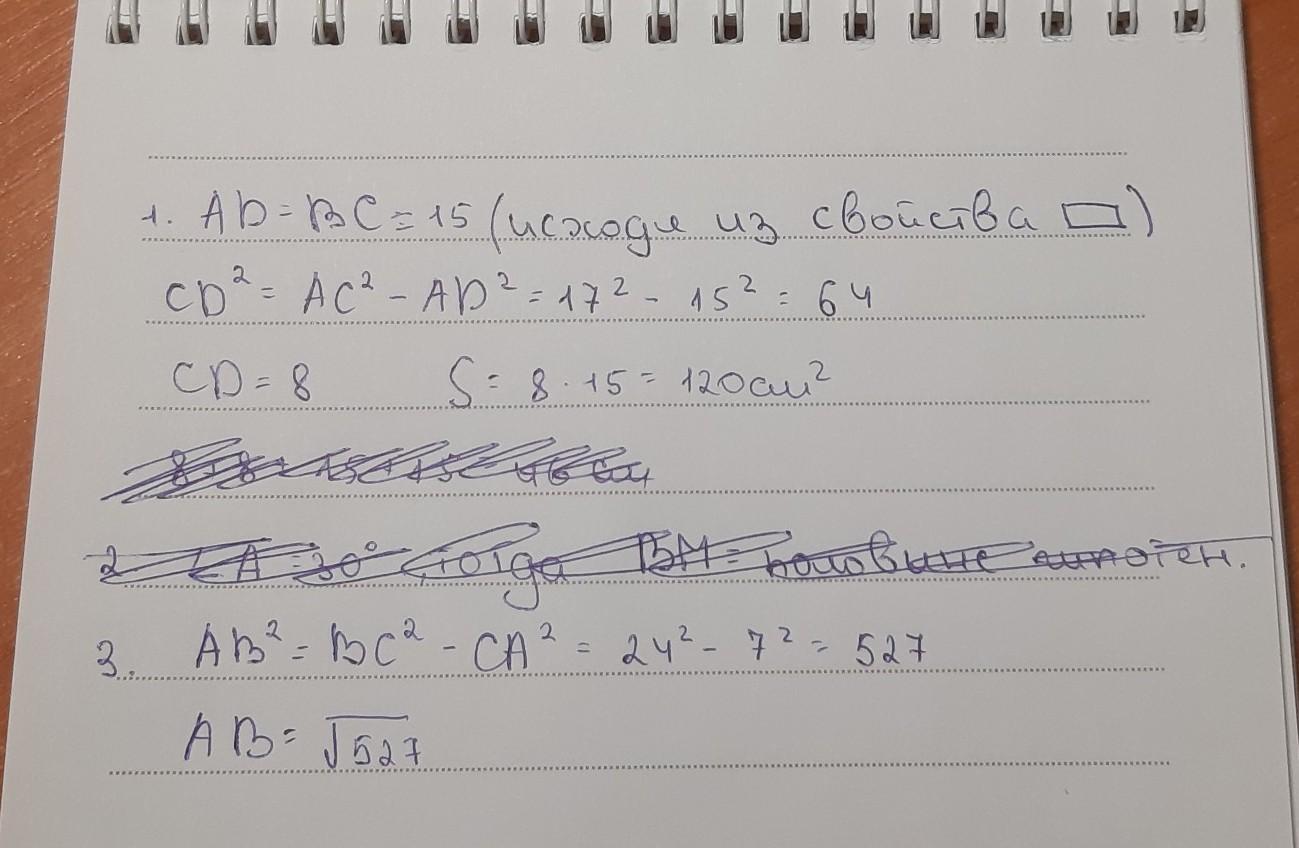 1. AD = BC = 15 (исходя из свойства ▭)
CD² = AC² - AD² = 17² - 15² = 64
CD = 8 S = 8 · 15 = 120 см²
8 + 8 + 15 + 15 = 46 см
2 ∠A = 30° тогда BM = половине гипотен.
3. AB² = BC² - CA² = 24² - 7² = 527
AB = √527